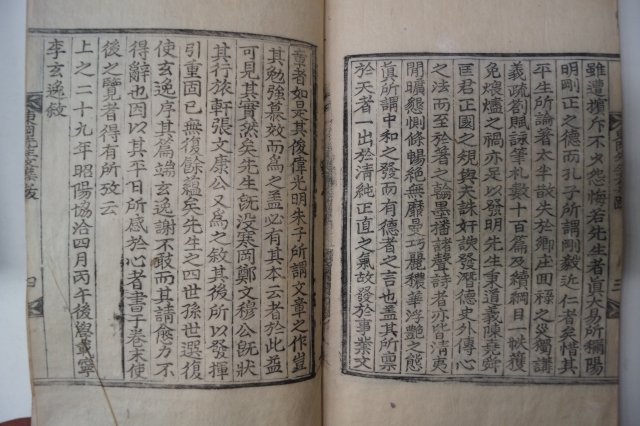 雖遭擯斥不少怨悔若先生者眞大易所稱陽
明剛正之德而孔子所謂剛毅近仁者矣惜其
平生所論著太半散失於鄕庄回祿之災屬講
義疏劄風詠筆札數十百篇及續綱目一帙獲
免煨燼之禍亦足以發明先生秉道義陳堯舜
匡君正國之規與夫誅奸諛發潛德史外傳心
之法而至於著之論墨播諸聲詩者亦皆淸夷
閒曠懇惻條暢絶無靡曼巧麗穠華浮艶之態
眞所謂中和之發而有德者之言也盖其所禀
於天者一出於淸純正直之氣故發於事業文
章者如是其俊偉光明朱子所謂文章之作豈
其勉强慕效而爲之盖必有其本云者於此益
可見其實然矣先生旣沒寒岡鄭文穆公旣狀
其行旅軒張文康公又爲之敘其後所以發揮
引重固已無復餘蘊矣先生之四世孫世選復
使玄逸序其篇端玄逸謝不敢而其請愈力不
得辭也因以其平日所感於心者書于卷末使
後之覽者得有所攷云
上之二十九年昭陽協洽四月丙午後學載寧
李玄逸敘
東岡先生文集跋
四
三